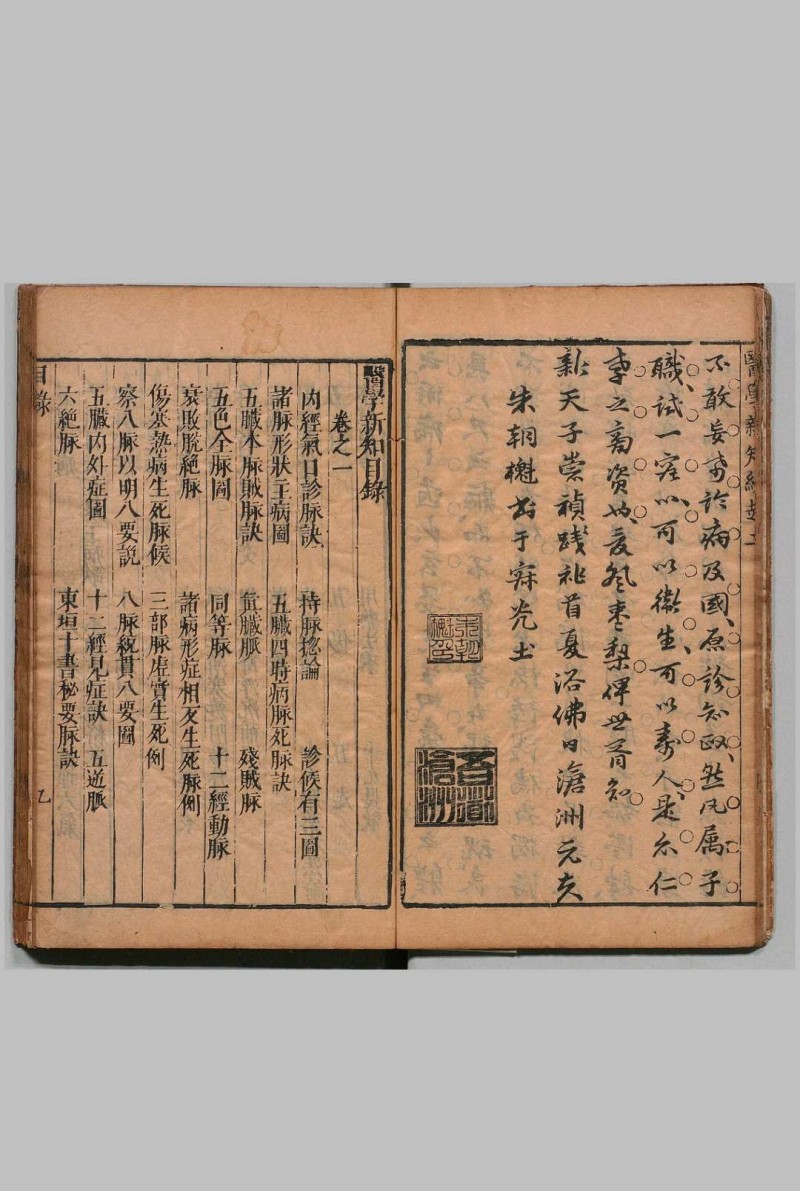 不敢妄希於病及國原診知政然凡属子
職試一窺以可以衛生可以壽人是亦仁
孝之啇资也爰災枣梨俾世胥知
新天子崇禎踐祚首夏浴佛日滄洲元夫
朱朝櫆書于寐光土
醫學新知目錄
卷之一
內經氣口診脉訣 持脉捴論 診候有三圖
諸脉形狀主病圖 五臟四時病脉死脉訣
五臟本脉賊脉訣 眞臟脈 殘賊脉
五色全脉圖 同等脉 十二經動脉
衰敗脫絕脉 諸病形症相反生死脉例
傷寒熱病生死脉候 三部脉虛實生死例
察八脉以明八要說 八脉統貫八要圖
五臟內外症圖 十二經見症訣 五逆脈
六絕脉 東垣十書秘要脉訣
目錄